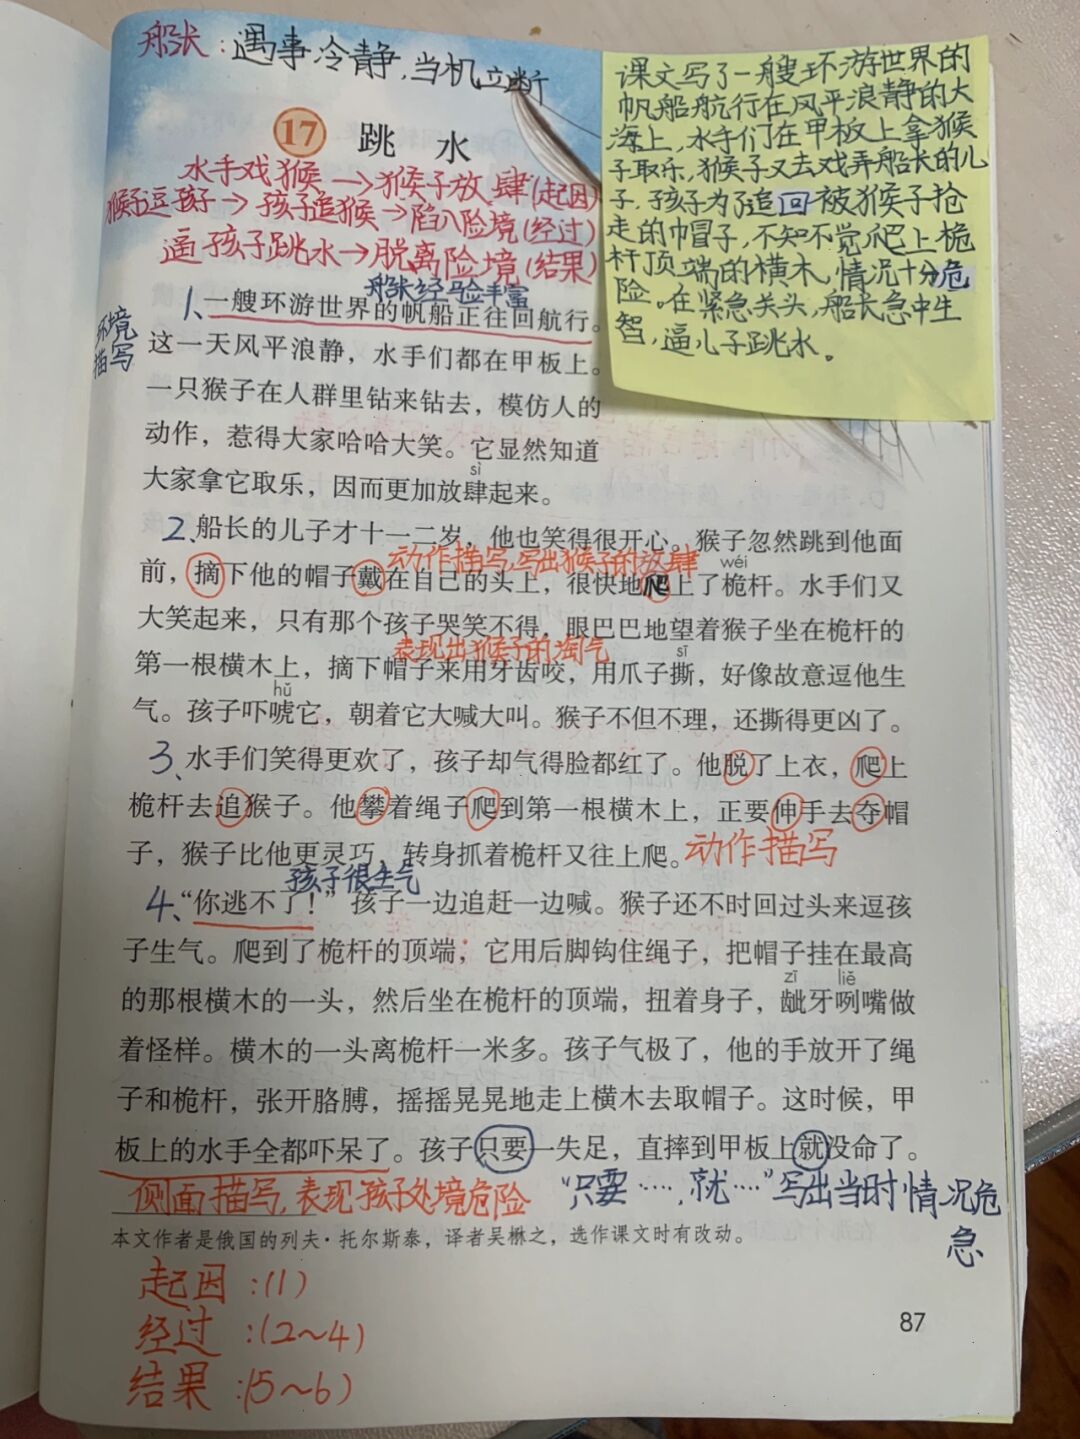 船长:遇事冷静,当机立断
17 跳水
水手戏猴→猴子放肆(起因)
猴子逗孩子→孩子追猴→陷入险境(经过)
逼孩子跳水→脱离险境(结果)
课文写了一艘环游世界的
帆船航行在风平浪静的大
海上,水手们在甲板上拿猴
子取乐,猴子又去戏弄船长的儿
子,孩子为了追回被猴子抢
走的帽子,不知不觉爬上桅
杆顶端的横木,情况十分危
险。在紧急关头,船长急中生
智,逼儿子跳水。
船长经验丰富
环境
描写
1、一艘环游世界的帆船正往回航行。
这一天风平浪静,水手们都在甲板上。
一只猴子在人群里钻来钻去,模仿人的
动作,惹得大家哈哈大笑。它显然知道
sì
大家拿它取乐,因而更加放肆起来。
2、船长的儿子才十一二岁,他也笑得很开心。猴子忽然跳到他面
动作描写,写出猴子的放肆
wéi
前,摘下他的帽子戴在自己的头上,很快地爬上了桅杆。水手们又
大笑起来,只有那个孩子哭笑不得,眼巴巴地望着猴子坐在桅杆的
表现出猴子的淘气
sī
第一根横木上,摘下帽子来用牙齿咬,用爪子撕,好像故意逗他生
hǔ
气。孩子吓唬它,朝着它大喊大叫。猴子不但不理,还撕得更凶了。
3、水手们笑得更欢了,孩子却气得脸都红了。他脱了上衣,爬上
桅杆去追猴子。他攀着绳子爬到第一根横木上,正要伸手去夺帽
子,猴子比他更灵巧,转身抓着桅杆又往上爬。动作描写
孩子很生气
4、“你逃不了!”孩子一边追赶一边喊。猴子还不时回过头来逗孩
子生气。爬到了桅杆的顶端;它用后脚钩住绳子,把帽子挂在最高
zī liě
的那根横木的一头,然后坐在桅杆的顶端,扭着身子,龇牙咧嘴做
着怪样。横木的一头离桅杆一米多。孩子气极了,他的手放开了绳
子和桅杆,张开胳膊,摇摇晃晃地走上横木去取帽子。这时候,甲
板上的水手全都吓呆了。孩子只要一失足,直摔到甲板上就没命了。
侧面描写,表现孩子处境危险
“只要……,就……”写出当时情况危
急
本文作者是俄国的列夫·托尔斯泰,译者吴楙之,选作课文时有改动。
起因:(1)
经过:(2~4)
结果:(5~6)
87